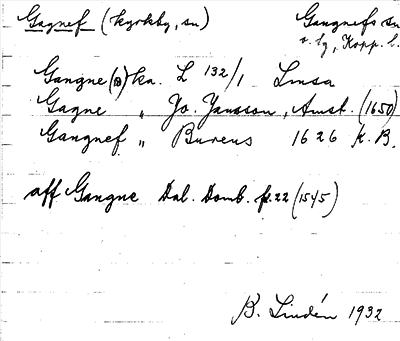 Gagnef (kyrkby, sn) Gangnefs sn
o. tg, Kopp. l.
Gangne (B) kn. L 132/1 Lmsa
Gagne " Jo. Jansson, Amst. (1650)
Gangnef " Bureus 1626 K. B.
aff Gangne Dal. Domb. p. 22 (1545)
B. Lindén 1932